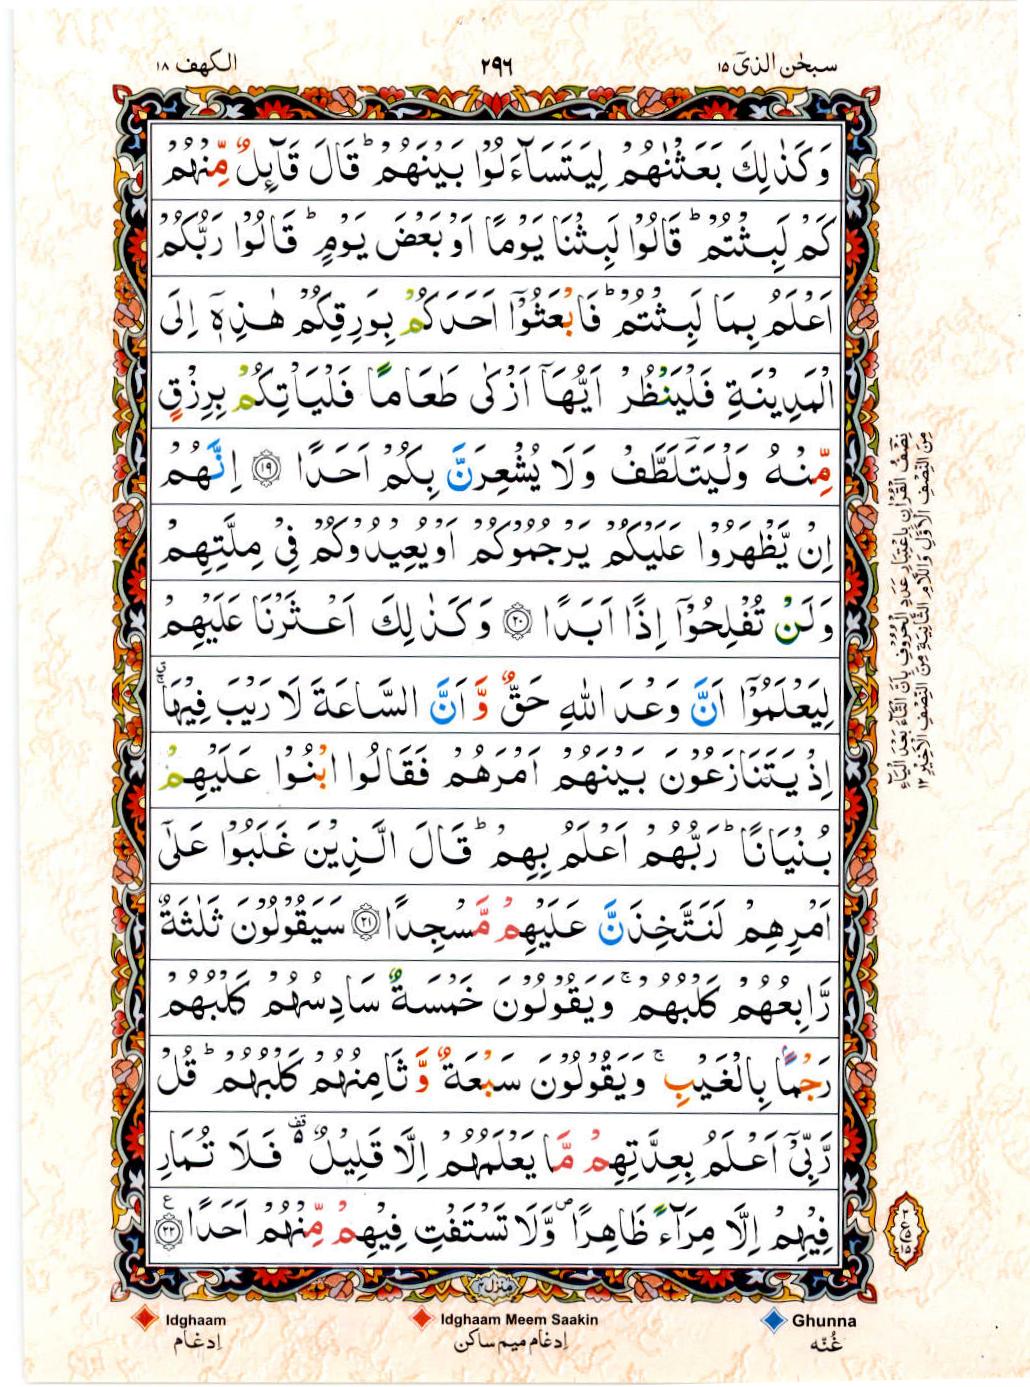 سبحٰن الذیۤ ۱۵
۲۹۶
الکھف ۱۸
وَكَذٰلِكَ بَعَثْنٰهُمْ لِيَتَسَآءَلُوْا بَيْنَهُمْ ؕ قَالَ قَآئِلٌ مِّنْهُمْ
كَمْ لَبِثْتُمْ ؕ قَالُوْا لَبِثْنَا يَوْمًا اَوْ بَعْضَ يَوْمٍ ؕ قَالُوْا رَبُّكُمْ
اَعْلَمُ بِمَا لَبِثْتُمْ ؕ فَابْعَثُوْۤا اَحَدَكُمْ بِوَرِقِكُمْ هٰذِهٖۤ اِلَى
الْمَدِيْنَةِ فَلْيَنْظُرْ اَيُّهَاۤ اَزْكٰى طَعَامًا فَلْيَاْتِكُمْ بِرِزْقٍ
مِّنْهُ وَلْيَتَلَطَّفْ وَلَا يُشْعِرَنَّ بِكُمْ اَحَدًا ۝۱۹ اِنَّهُمْ
اِنْ يَّظْهَرُوْا عَلَيْكُمْ يَرْجُمُوْكُمْ اَوْ يُعِيْدُوْكُمْ فِيْ مِلَّتِهِمْ
وَلَنْ تُفْلِحُوْۤا اِذًا اَبَدًا ۝۲۰ وَكَذٰلِكَ اَعْثَرْنَا عَلَيْهِمْ
لِيَعْلَمُوْۤا اَنَّ وَعْدَ اللّٰهِ حَقٌّ وَّاَنَّ السَّاعَةَ لَا رَيْبَ فِيْهَا
اِذْ يَتَنَازَعُوْنَ بَيْنَهُمْ اَمْرَهُمْ فَقَالُوا ابْنُوْا عَلَيْهِمْ
بُنْيَانًا ؕ رَبُّهُمْ اَعْلَمُ بِهِمْ ؕ قَالَ الَّذِيْنَ غَلَبُوْا عَلٰٓى
اَمْرِهِمْ لَنَتَّخِذَنَّ عَلَيْهِمْ مَّسْجِدًا ۝۲۱ سَيَقُوْلُوْنَ ثَلٰثَةٌ
رَّابِعُهُمْ كَلْبُهُمْ ۚ وَيَقُوْلُوْنَ خَمْسَةٌ سَادِسُهُمْ كَلْبُهُمْ
رَجْمًۢا بِالْغَيْبِ ۚ وَيَقُوْلُوْنَ سَبْعَةٌ وَّثَامِنُهُمْ كَلْبُهُمْ ؕ قُلْ
رَّبِّيْۤ اَعْلَمُ بِعِدَّتِهِمْ مَّا يَعْلَمُهُمْ اِلَّا قَلِيْلٌ ۫ فَلَا تُمَارِ
فِيْهِمْ اِلَّا مِرَآءً ظَاهِرًا ۪ وَّلَا تَسْتَفْتِ فِيْهِمْ مِّنْهُمْ اَحَدًا ۝۲۲
نِصْفُ الْقُرْاٰنِ بِاعْتِبَارِ عَدَدِ الْحُرُوْفِ بِاَنَّ التَّاءَ بَعْدَ الْيَاءِ
مِنَ النِّصْفِ الْاَوَّلِ وَاللَّامَ الثَّانِيَةَ مِنَ النِّصْفِ الْاَخِيْرِ ۱۲
منزل ۴
Idghaam
Idghaam Meem Saakin
Ghunna
اِدغام
اِدغام میم ساکن
غُنّه